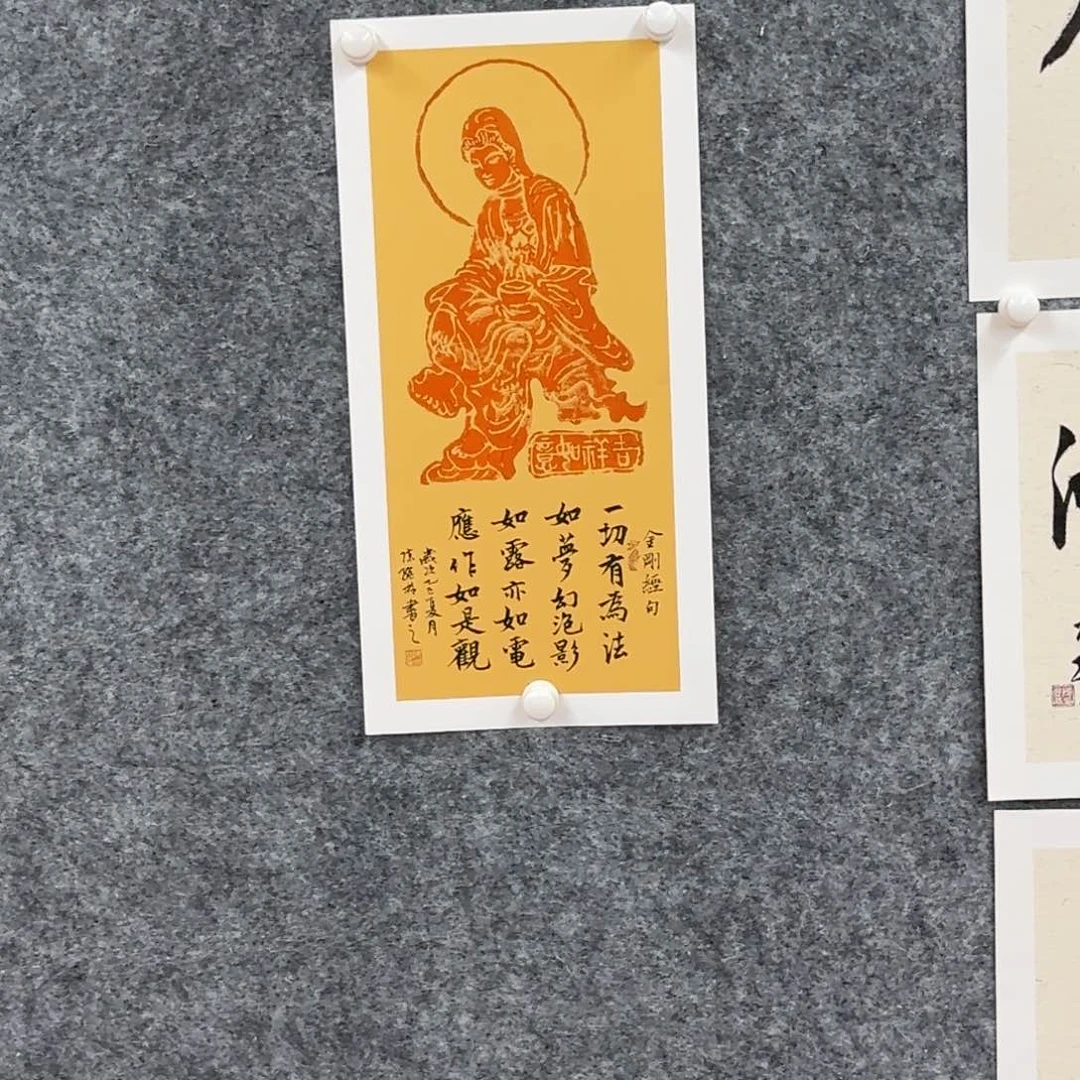 吉祥如意
金剛經句
一切有為法
如夢幻泡影
如露亦如電
應作如是觀
歲次乙巳夏月
書之